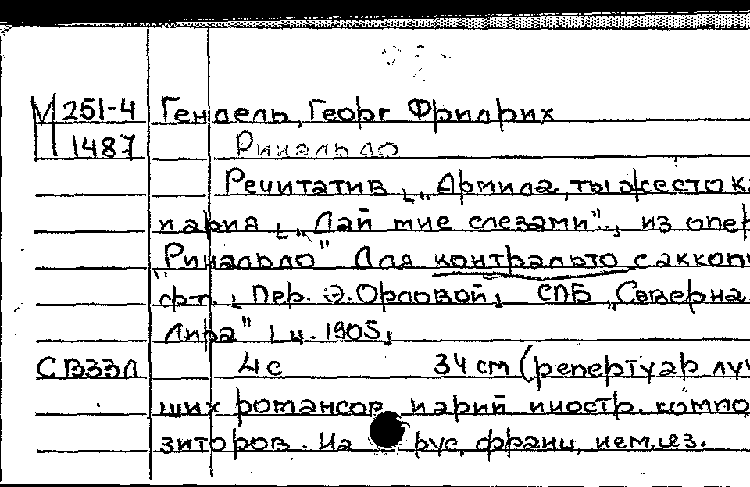 М 251-4 Гендель, Георг Фридрих
1487 Ринальдо
Речитатив „Армида, ты жесток
и ария „Дай мне слезами", из опер
"Ринальдо" Для контральто с аккомп
ф-п. Пер. Э. Орловой, СПБ „Северна
Лира" ц. 1905,
СВЗЗЛ 4с 34 см (репертуар луч
ших романсов и арий иностр. компо
зиторов. На рус, франц, нем. яз.